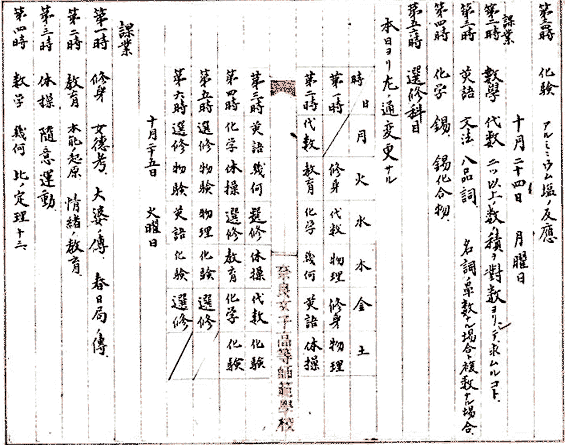 第五時　化験　アルミニウム塩ノ反應
十月二十四日　月曜日
課業
第二時　數學　代数　二ツ以上ノ数ノ積ヲ對數ヨリシテ求ムルコト、
第三時　英語　文法　八品詞　名詞ノ単数ナル場合ト複数ナル場合、
第四時　化学　錫、錫化合物、
第五六時　選修科目
本日ヨリ左ノ通変更サル
時　日　月　火　水　木　金　土
第一時　修身　代数　物理　修身　物理
第二時　代数　教育　化学　幾何　英語　体操
奈良女子高等師範學校
第三時　英語　幾何　選修　体操　代数　化験
第四時　化学　体操　選修　教育　化学　化験
第五時　選修　物験　物理　化験　選修
第六時　選修　物験　英語　化験　選修
十月二十五日　火曜日
課業
第一時　修身　女徳考、大婆ノ傳　春日局ノ傳、
第二時　教育　本能ノ起原　情緒ノ教育、
第三時　体操　隨意運動
第四時　数学　幾何　比ノ定理十二、